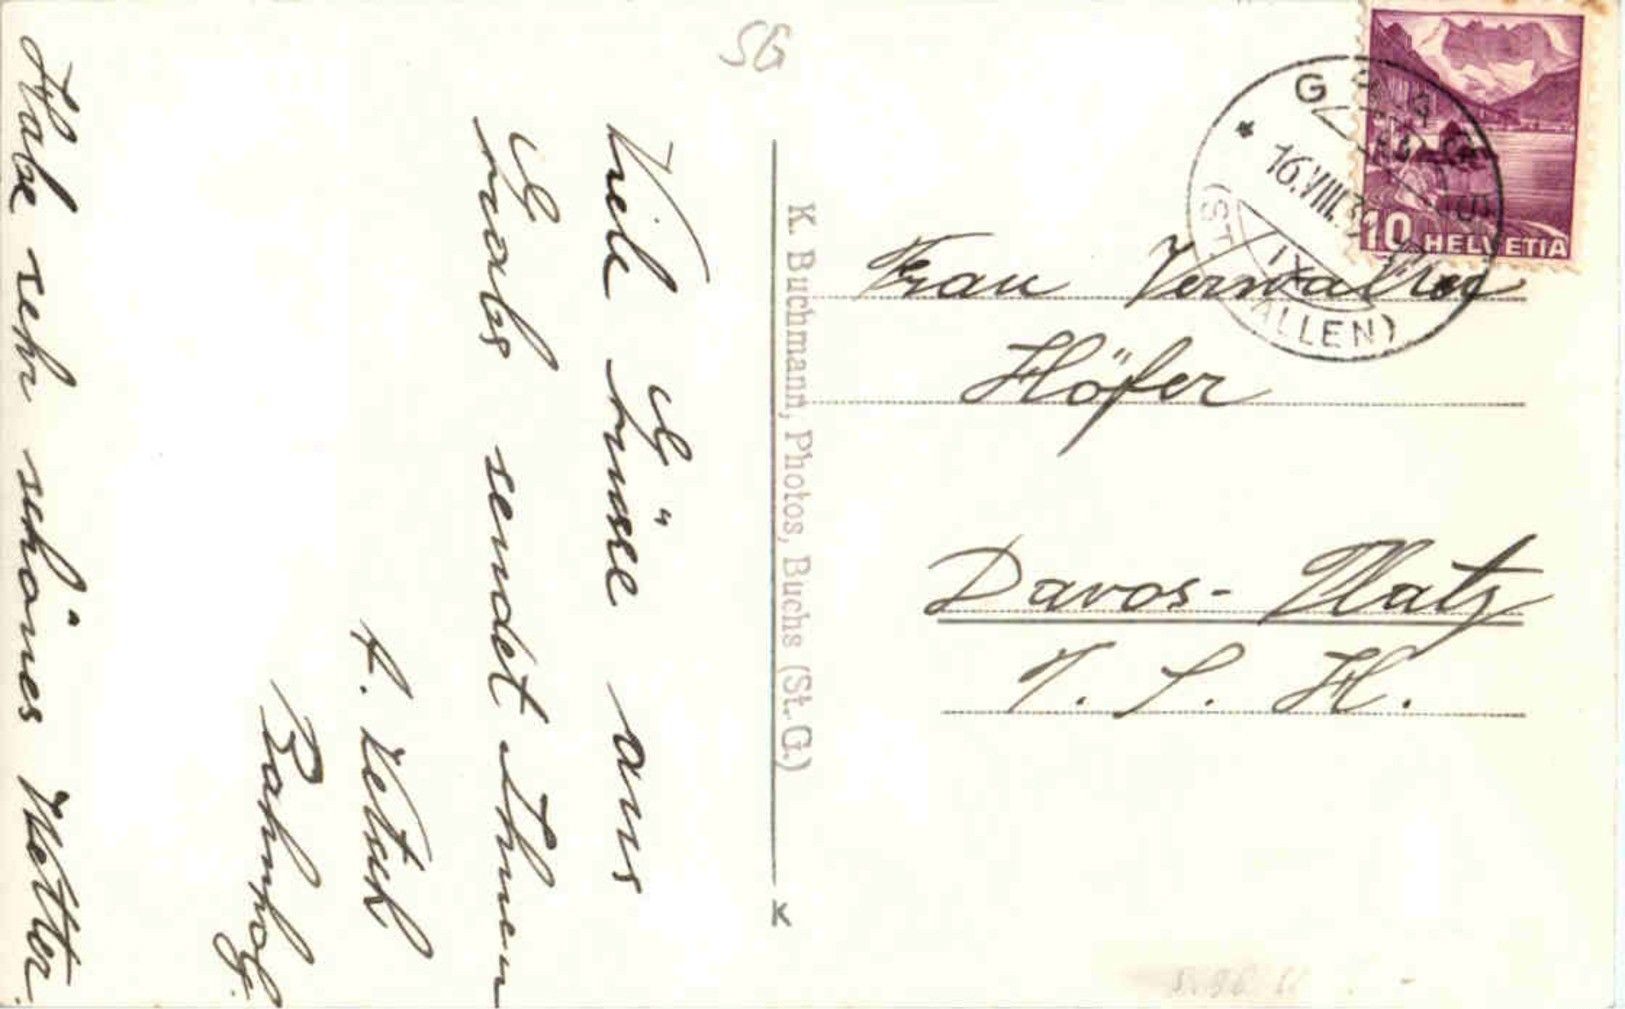 SG
Viele Grüsse aus
Grabs sendet Ihnen
A. Vetsch
Bahnhof.
Habe sehr schönes Wetter.
K. Buchmann, Photos, Buchs (St. G.)
K
16.VIII.3
IX
(ST. GALLEN)
10 HELVETIA
Frau Verwalter
Höfer
Davos-Platz
T. S. H.